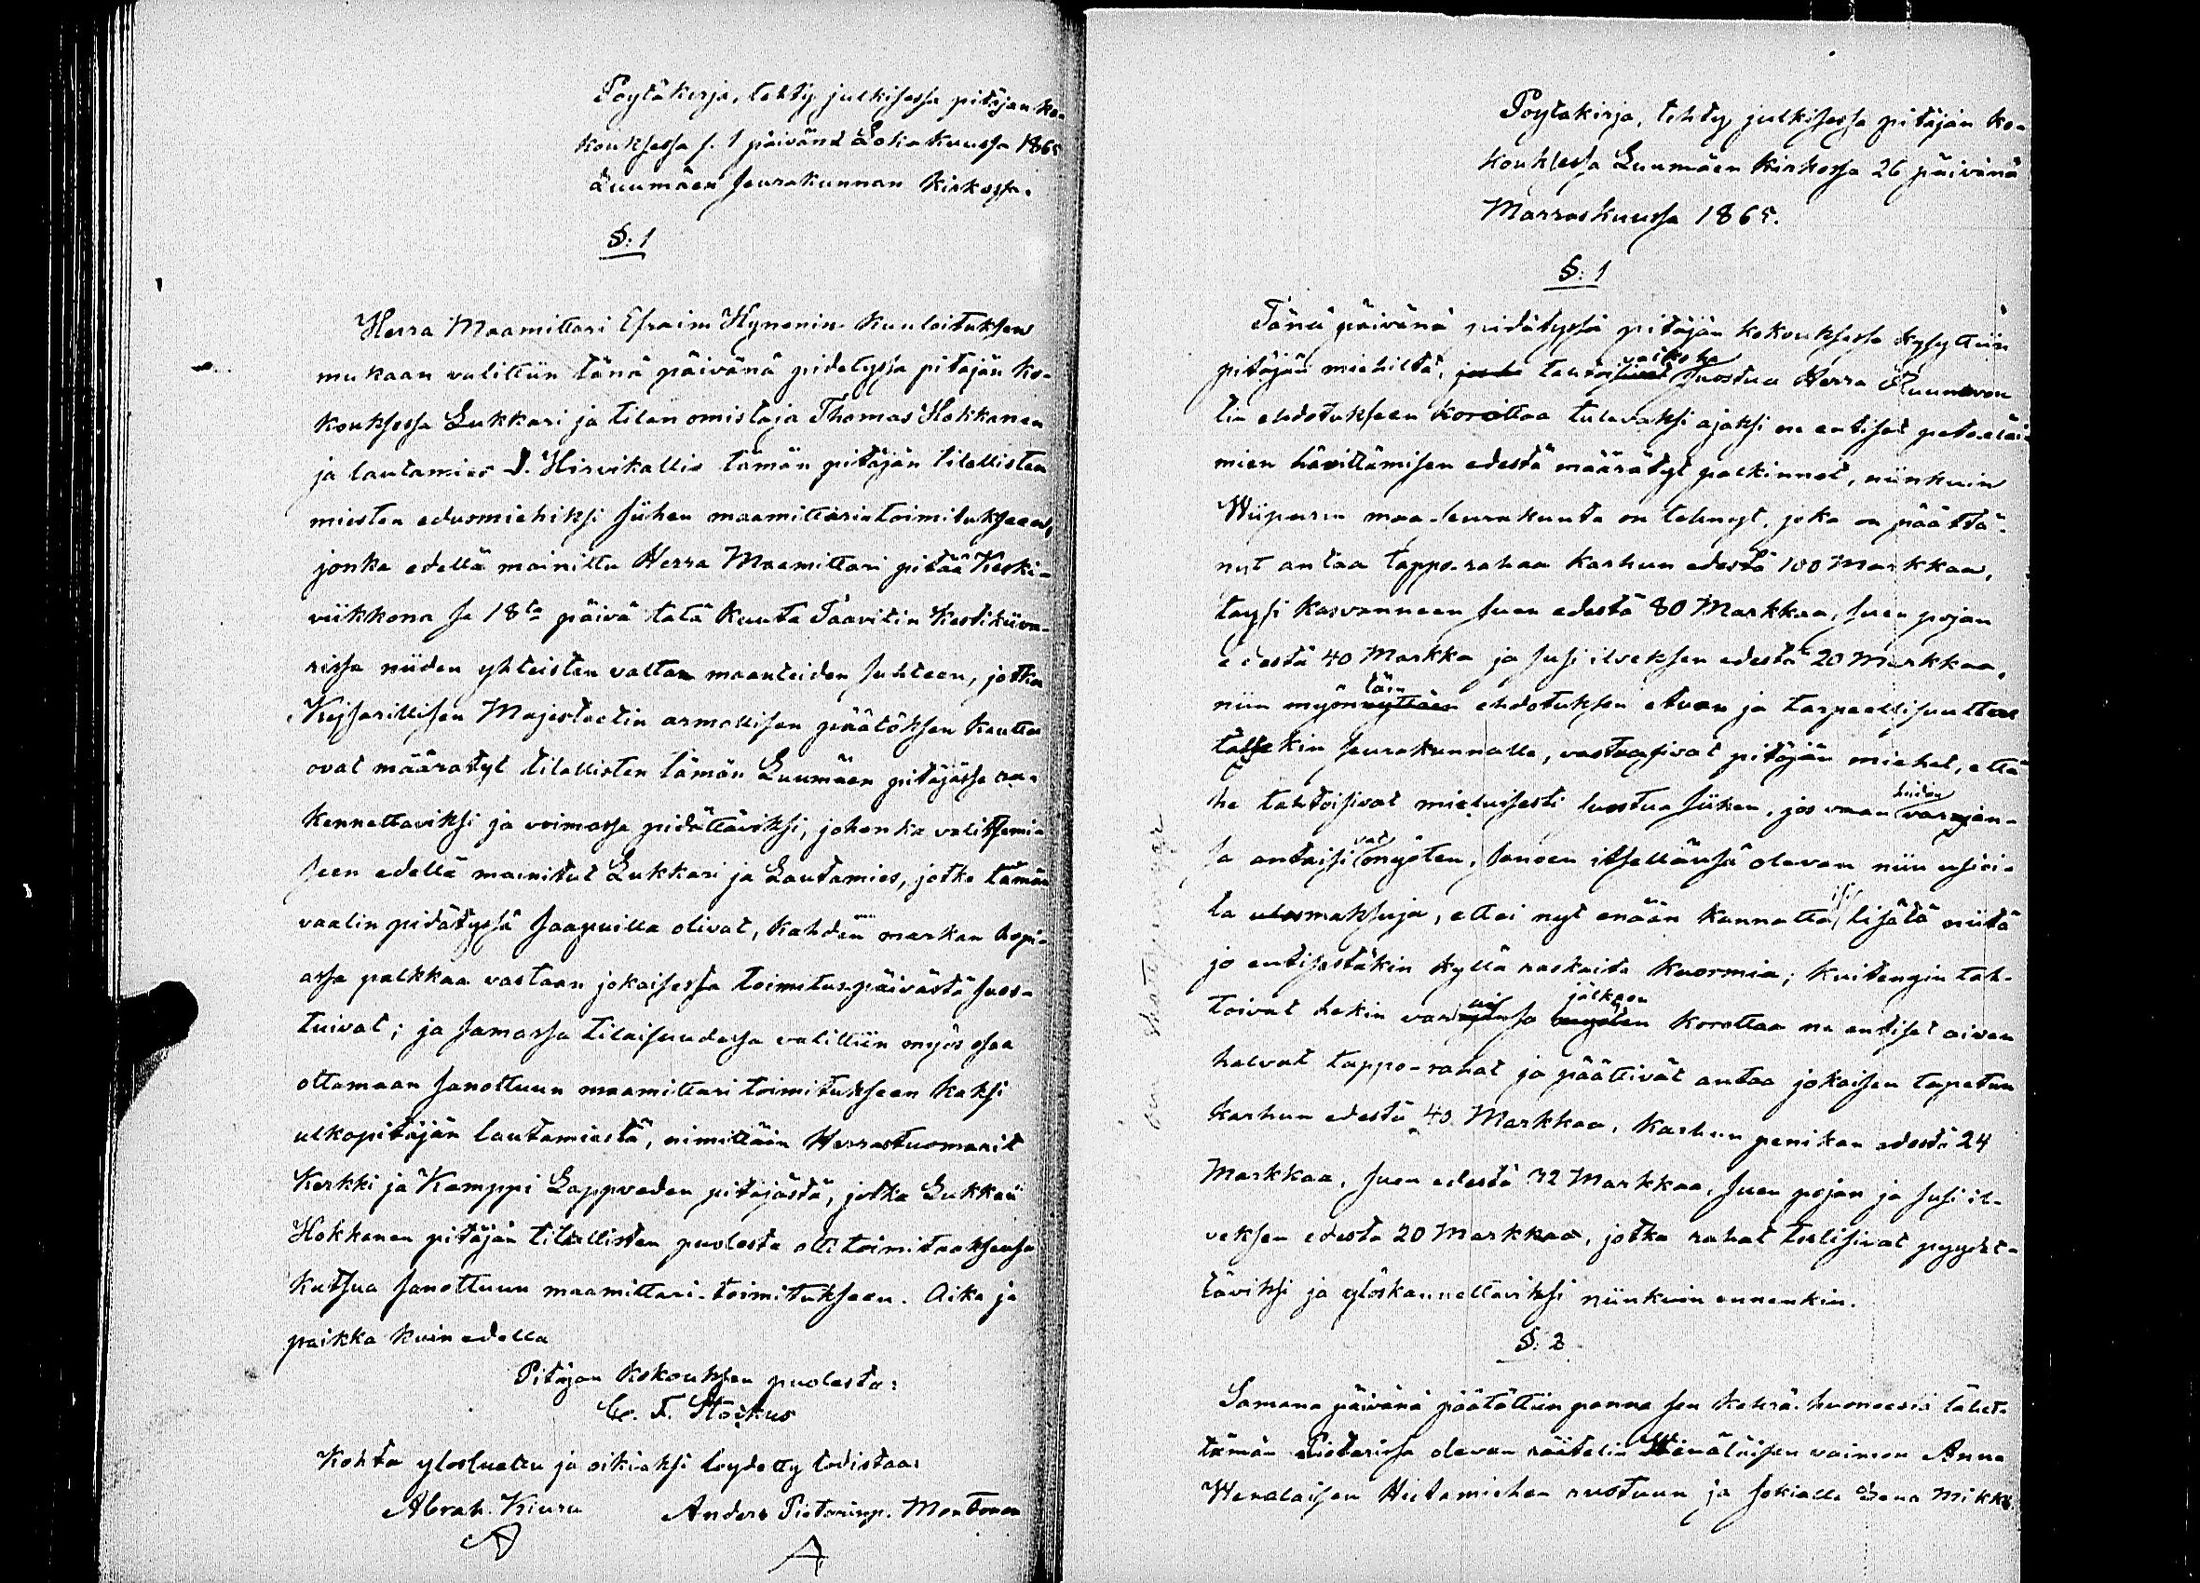 Poytäkirja, tehty julkisessa pitäjan ko-
kouksessa s. 1 päivänä Lokakuussa 1865
Luumäen seurakunnan kirkossa.
§: 1
Herra Maamittari Efraim Hynenin kuuloituksen
mukaan valittiin tänä päivänä pidetyssa pitajän ko-
kouksessa Lukkari ja tilan omistaja Thomas Hokkanen
ja lautamies J. Hirvikallio tämän pitäjän tilallisten
miesten edusmiehiksi siihen maamittarin toimitukseen,
jonka edellä mainittu Herra Maamittari pitää Keski-
viikkona se 18ta päivä tatä kuuta Taavitin Kestikiiva-
rissa niiden yhteisten valtan maanteiden suhteen, jotka
Kejsarillisen Majesteetin armollisen päätöksen kautta
ovat määratyt tilallisten tämän Luumäen pitäjässa ra-
kennettaviksi ja voimassa pidättäviksi, johonka valitsemi-
seen edellä mainitut Lukkari ja Lautamies, jotka tämän
vaalin pidätyssä saapuilla olivat, kahden markan hopi-
assa palkkaa vastaan jokaisessa toimituspäivästä suos-
tuivat; ja samassa tilaisuudessa valittiin myös osaa
ottamaan sanottuun maamittari toimitukseen kaksi
ulkopitäjän lautamiestä, nimittäin Herrastuomarit
Kerkki ja Kamppi Lappveden pitäjästä, jotka Lukkari
Hokkanen pitäjän tilallisten puolesta otti toimitaaksensa
kutsua sanottuun maamittari-toimitukseen. Aika ja
paikka kuin edella
Pitäjan kokouksen puolesta:
C. F. Stöckus
Kohta ylosluettu ja oikiaksi loydetty todistaa:
Abrah. Kiuru Anders Pietarinp. Montonen
Poytakirja, tehty julkisessa pitäjän ko-
kouksessa Luumäen kirkossa 26 päivänä
Marraskuussa 1865.
§: 1
Tänä päivänä pidätyssä pitäjän kokouksessa kysyttiin
pitäjän miehiltä, tahtoisivat suostua Herra Kuunevon
tin ehdotukseen korottaa tulevaksi ajaksi ne entiset petoeläi-
mien hävittämisen edestä määrätyt palkinnot, niinkuin
Wiipurin maa-seurakunta on tehnyt, joka on päättä-
nyt antaa tapporahaa karhun edestä 100 Markkaa,
taysi kasvanneen suen edestä 80 Markkaa, suen pojan
edestä 40 Markka ja susi ilveksen edestä 20 Markkaa,
täin
niin myönnyttäen ehdotuksen etuen ja tarpeellisuutten
tällekin seurakunnalle, vastasivat pitäjän miehet, että
heidän
he tahtoisivat mieluisesti suostua siihen, jos vaan varojan-
vat
sa antaisi myöten, sanoen itsellänsä olevan niin usioi-
isi
ta ulosmaksuja, ettei nyt enään kannatta lisätä niitä
jo entisestäkin kyllä raskaita kuormia; kuitengin tah-
jälkeen
toivat hekin varojensa myöten korottaa ne entiset aivan
halvat tappo-rahat ja päättivät antaa jokaisen tapetun
karhun edestä 40 Markkaa, karhun penikan edestä 24
Markkaa, suen edestä 32 Markkaa, suen pojan ja susi il-
veksen edesta 20 Markkaa, jotka rahat tulisivat pyydet-
täviksi ja yloskannettaviksi niinkuin ennenkin.
§: 2
Samana päivänä päätättiin panna sen kehrä-huoneesta lähet-
tämän Pietarissa olevan räätalin Wenäläisen vaimon Anna
Wenalaisen Hietamiehen ruotuun ja sokialle Lena Mikk